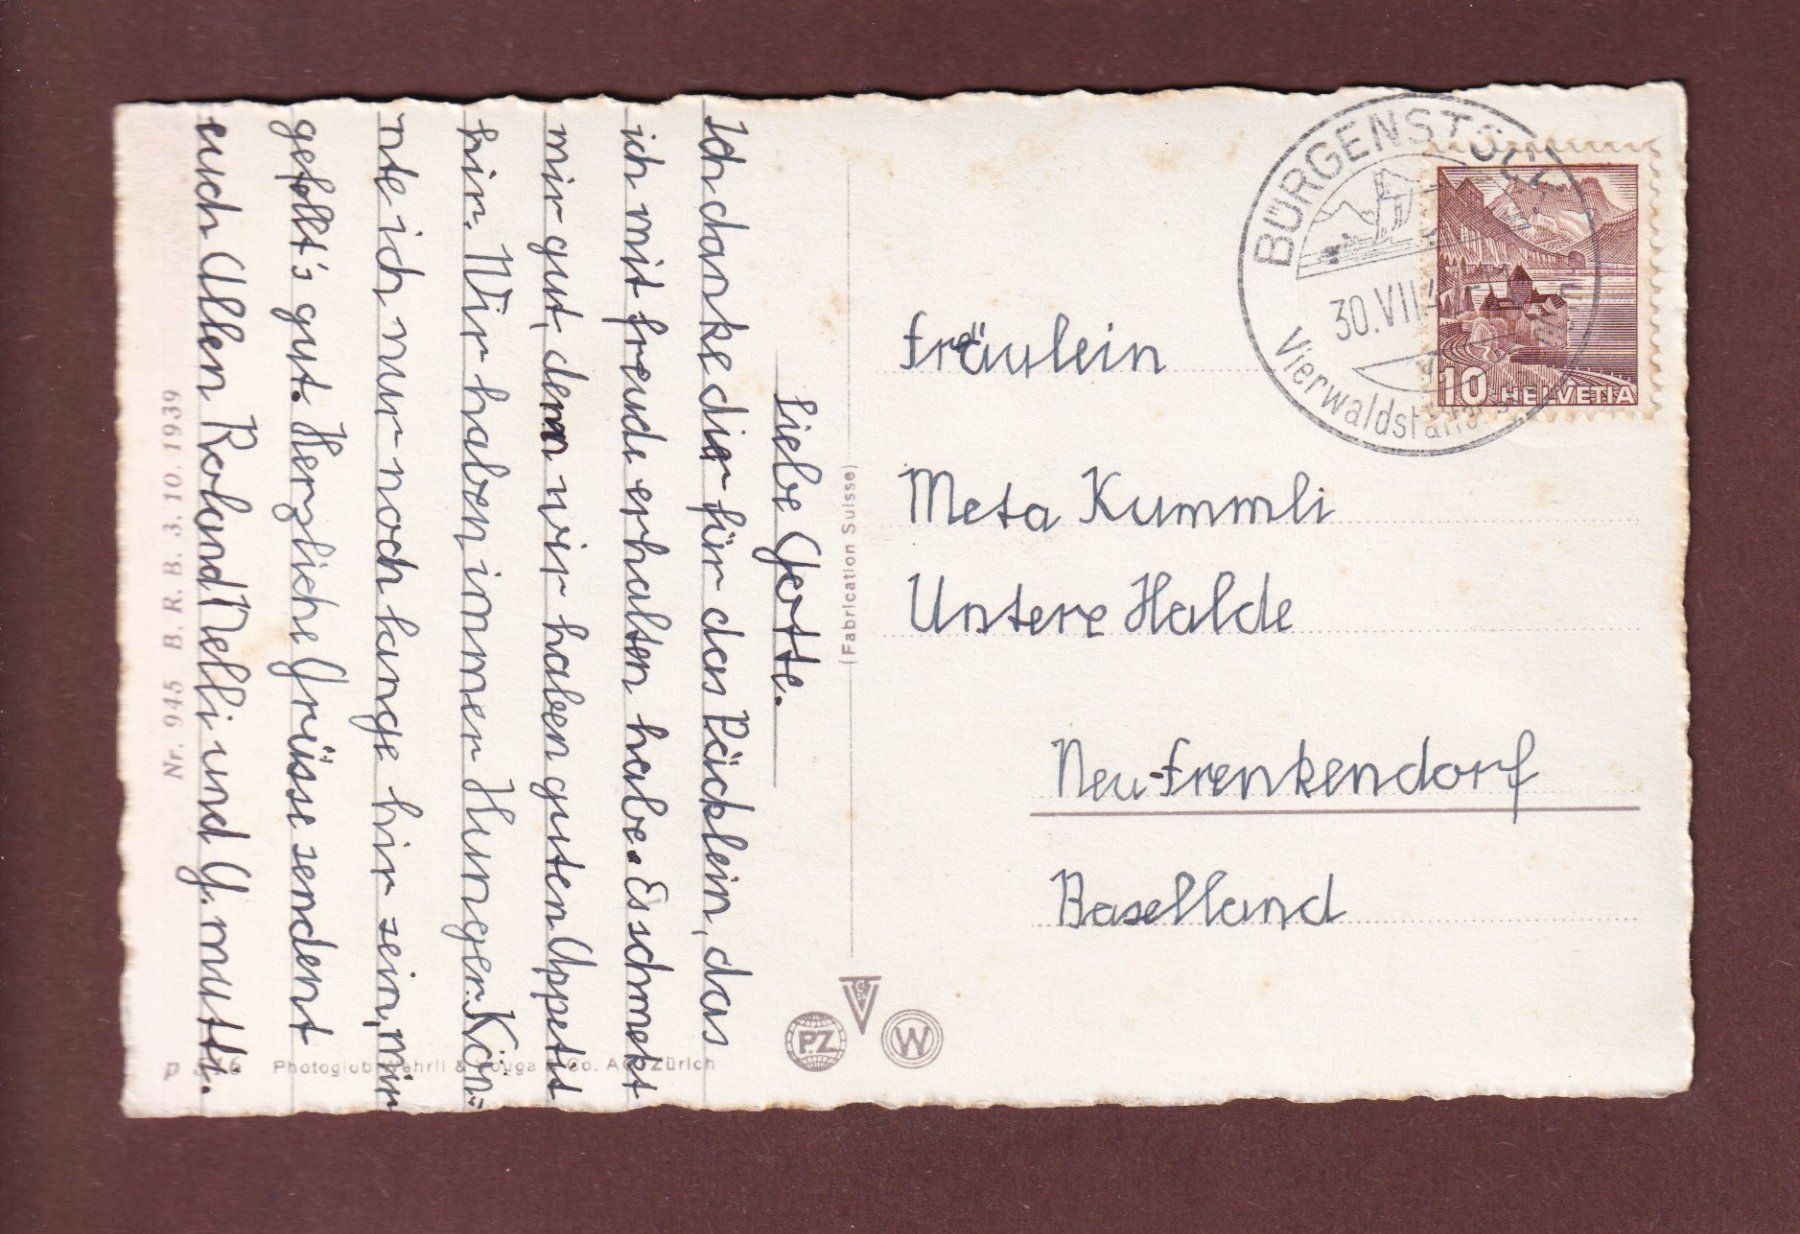 Liebe Gotte.
Ich danke dir für das Päcklein, das
ich mit freude erhalten habe. Es schmekt
mir gut, denn wir haben guten Appetit
hir. Wir haben immer Hunger. Kön=
nte ich nur noch lange hir sein, mir
gefallt's gut. Herzliche Grüsse sendent
euch Allen Roland Nelli und G. mutti.
Nr. 945 B. R. B. 3. 10. 1939
Photoglob-Wehrli & Vouga & Co. AG. Zürich
(Fabrication Suisse)
PZ
V
W
BÜRGENSTOCK
30.VII.4
Vierwaldstätt
10 HELVETIA
Fräulein
Meta Kummli
Untere Halde
Neu-Frenkendorf
Baselland